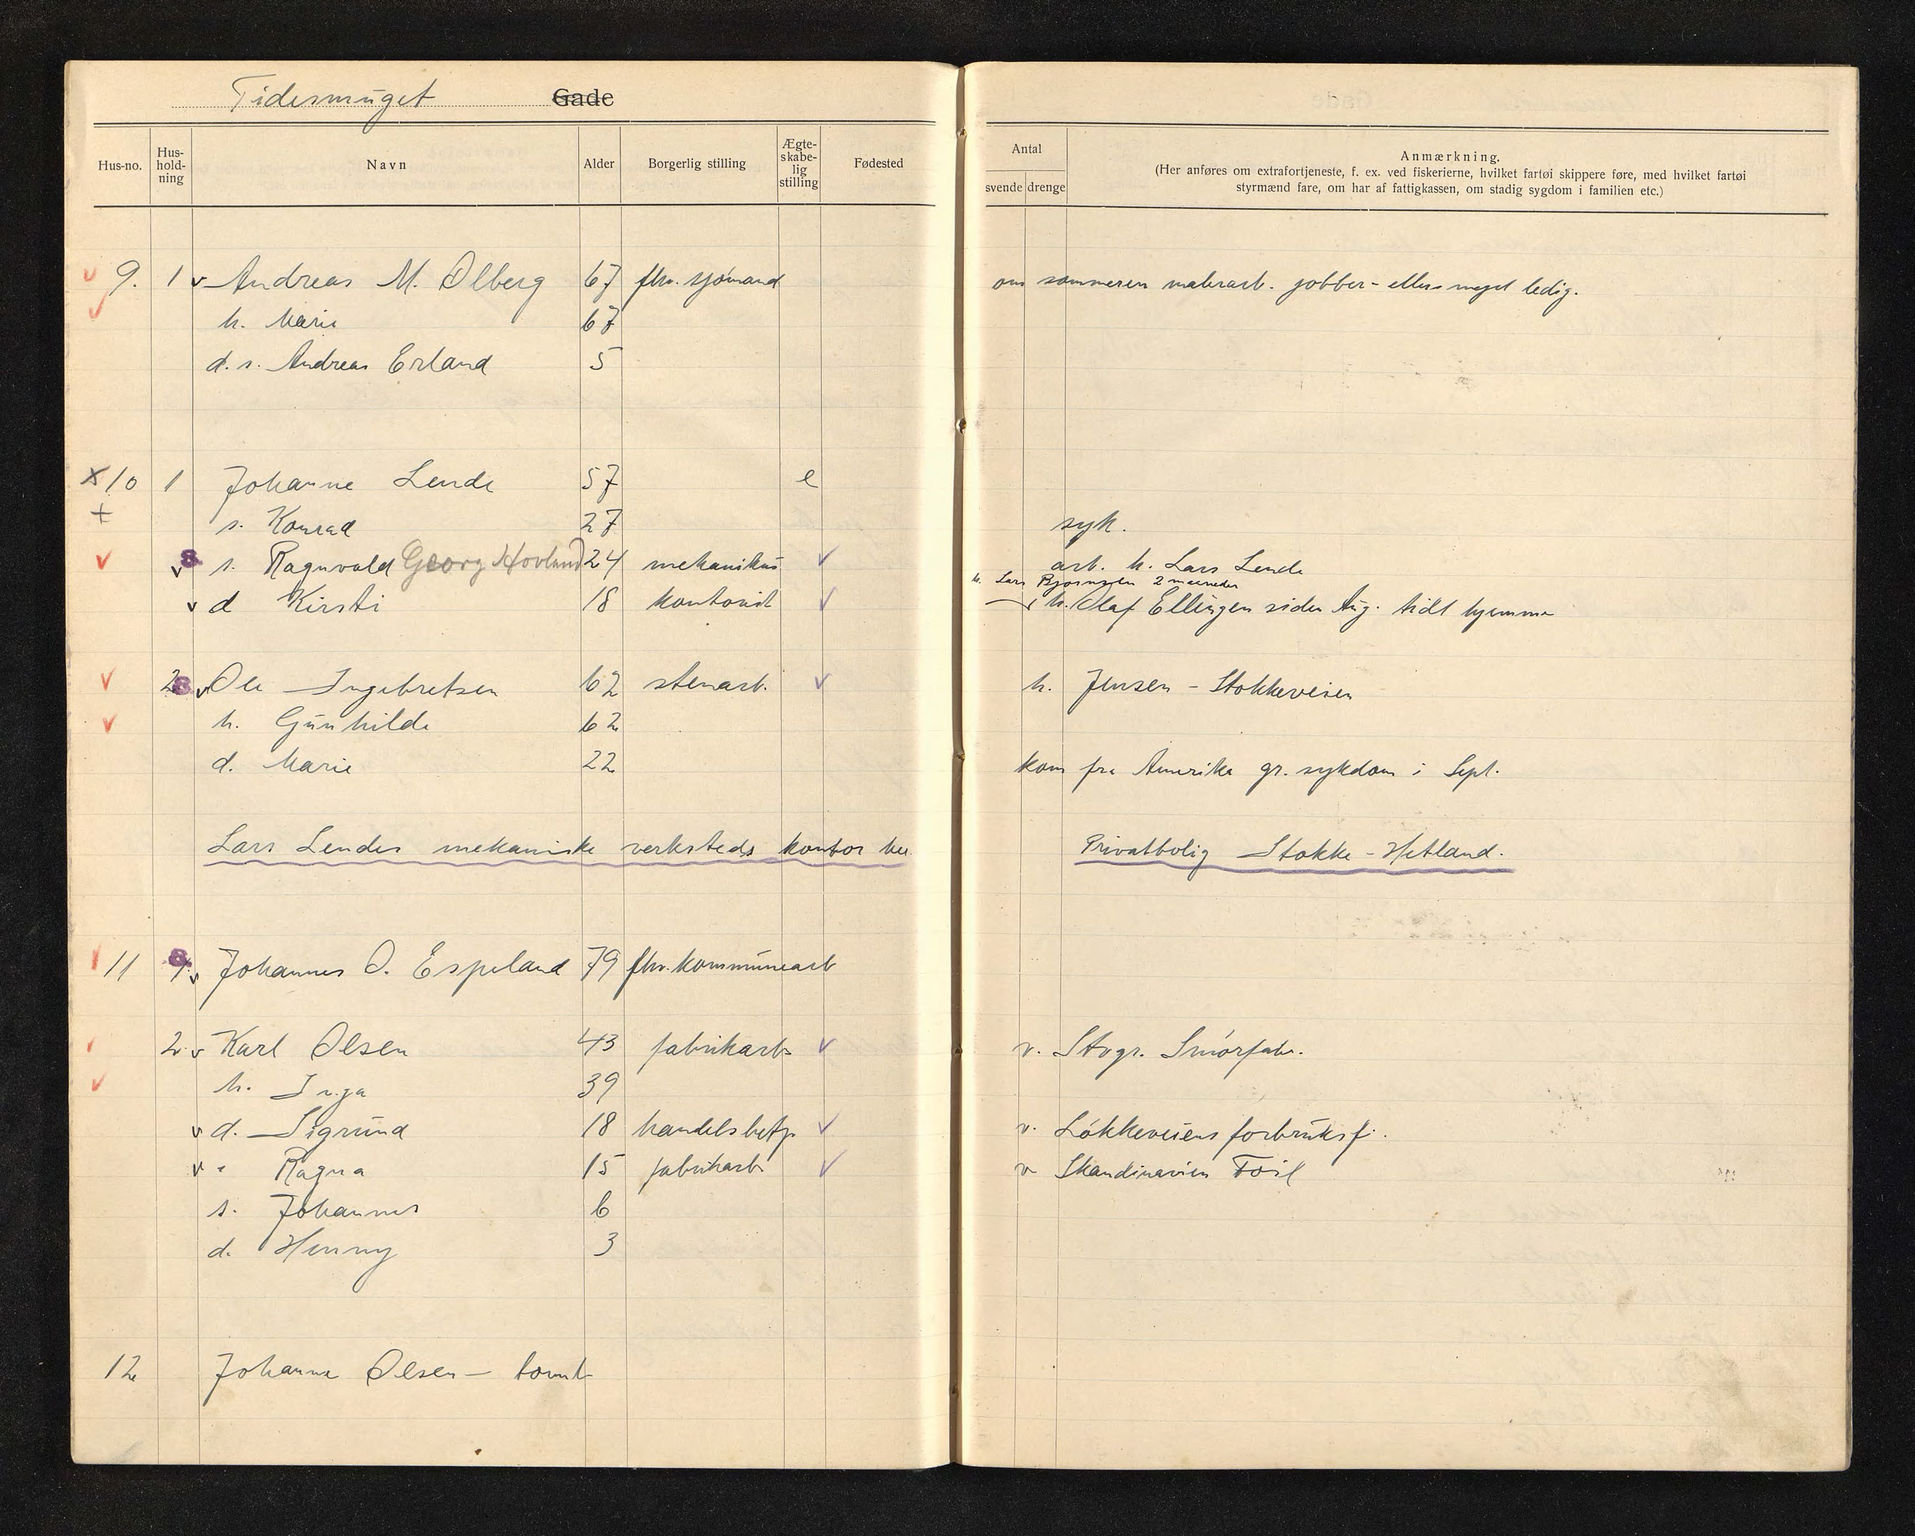 Tidesmuget Gade
Hus-no. Hus-hold-ning Navn Alder Borgerlig stilling Ægte-skabe-lig stilling Fødested
Antal svende drenge
Anmærkning.
(Her anføres om extrafortjeneste, f. ex. ved fiskerierne, hvilket fartøi skippere føre, med hvilket fartøi
styrmænd fare, om har af fattigkassen, om stadig sygdom i familien etc.)
9. 1 Andreas M. Olberg 67 fhv. sjömand om sommeren malerarb. jobber - ellers meget ledig.
h. Marie 67
d. s. Andreas Erland 5
10 1 Johanne Lende 57 e
s. Konrad 27 syk.
s. Ragnvald Georg Hovland 24 mekanikus arb. h. Lars Lende
h. Lars Bjørnsen 2 maaneder
d Kirsti 18 kontorist h. Olaf Ellingsen siden Aug. tidt hjemme
2 Ole Ingebretsen 62 stenarb. h. Jensen - Stokkeveien
h. Gunhilde 62
d. Marie 22 kom fra Amerika gr. sykdom i Sept.
Lars Lendes mekaniske verksteds kontor her Privatbolig Stokke - Hetland.
11 1. Johannes O. Espeland 79 fhv. kommunearb
2. Karl Olsen 43 fabrikarb v. Stvgr. Smörfabr.
h. Inga 39
d. Sigrund 18 handelsbetj. v. Lökkeveiens forbruksf.
" Ragna 15 fabrikarb v Skandinavien
s. Johannes 6
d. Henny 3
12 Johanne Olsen - tomt